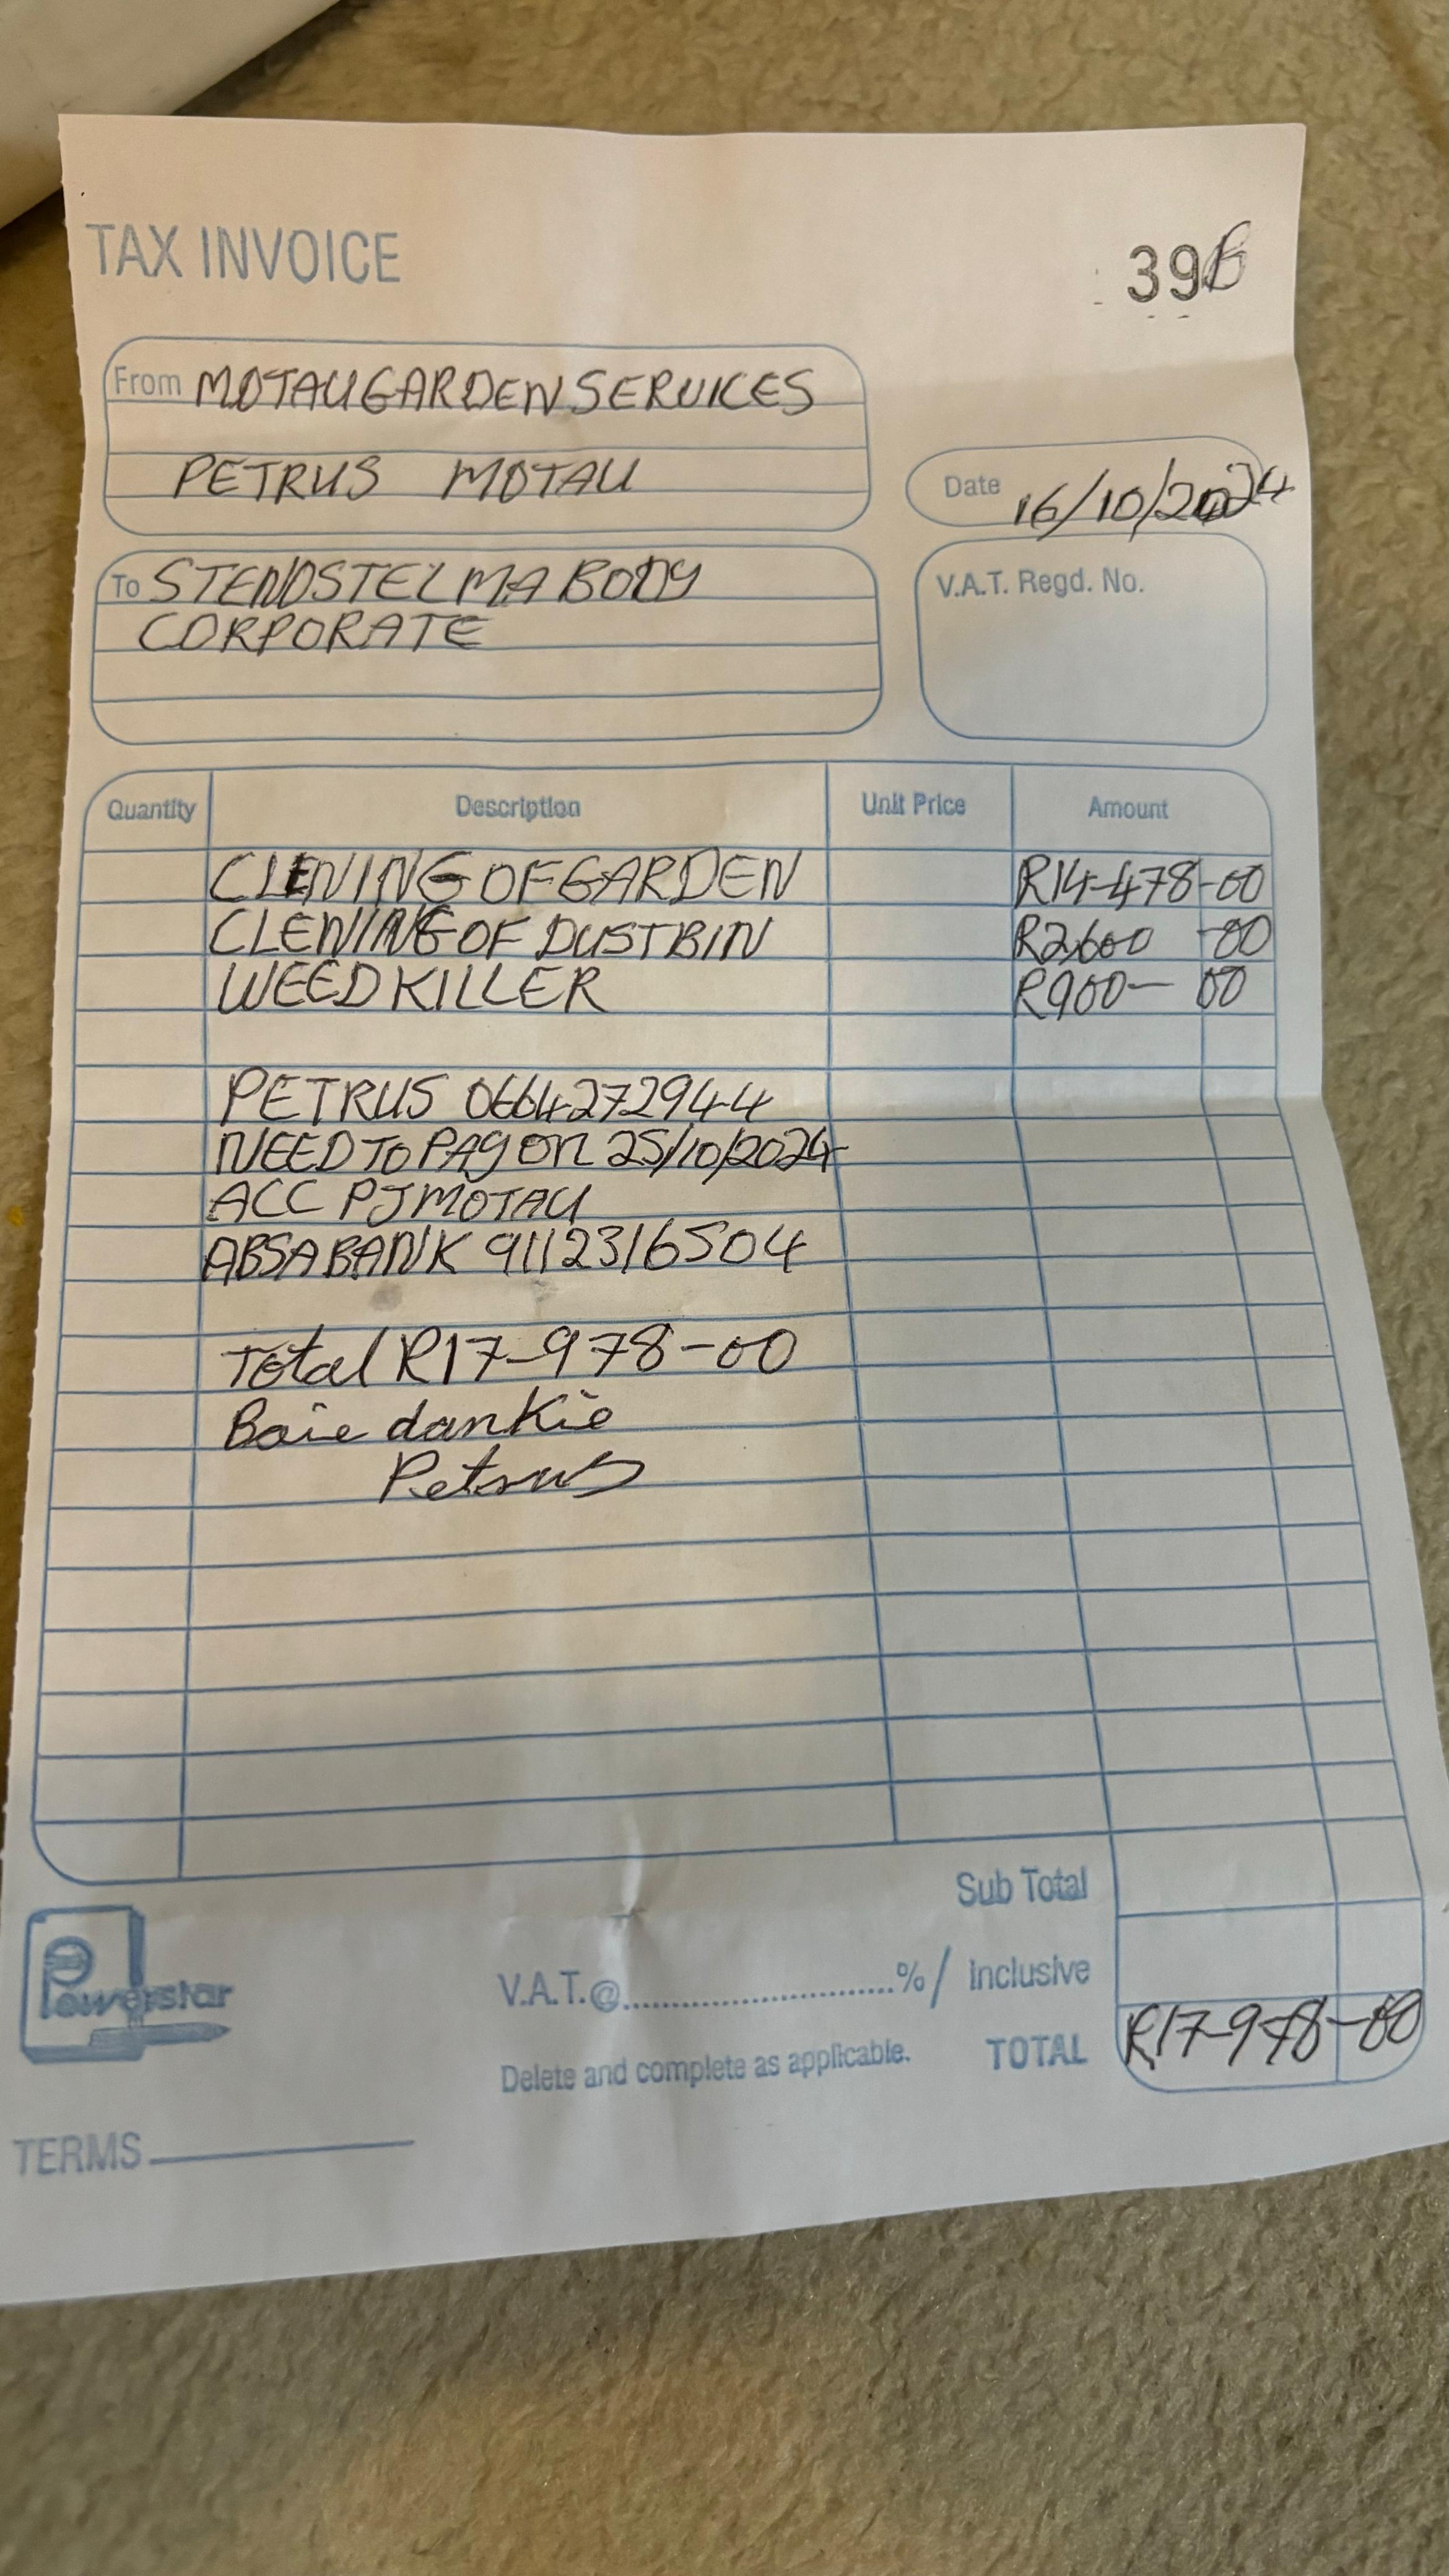 TAX INVOICE
396
From MOTAU GARDEN SERVICES
PETRUS MOTAU
Date 16/10/2024
To STENOSTELMA BODY
CORPORATE
V.A.T. Regd. No.
Quantity Description Unit Price Amount
CLENING OF GARDEN R14-478-00
CLENING OF DUSTBIN R2600-00
WEED KILLER R900-00
PETRUS 0664272944
NEED TO PAY ON 25/10/2024
ACC PJ MOTAU
ABSA BANK 9112316504
Total R17-978-00
Baie dankie
Petrus
Sub Total
Powerstar
V.A.T.@..............................%/ Inclusive
Delete and complete as applicable. TOTAL R17-978-00
TERMS